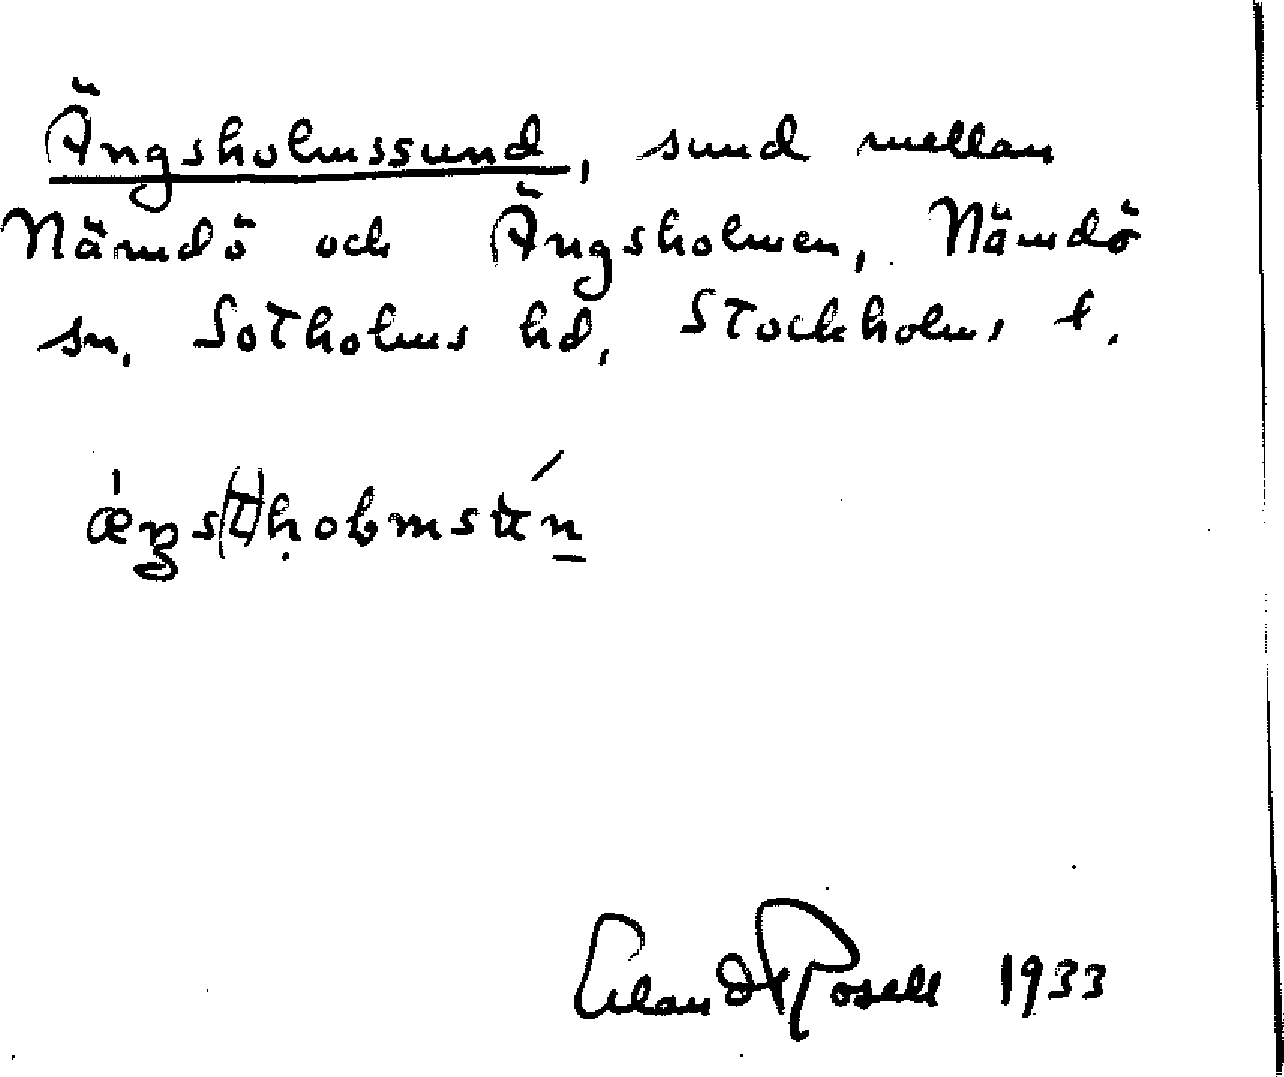 Ängsholmssund, sund mellan
Nämdö och Ängsholmen, Nämdö
sn, Sotholms hd, Stockholms l.
Erland Rosell 1933